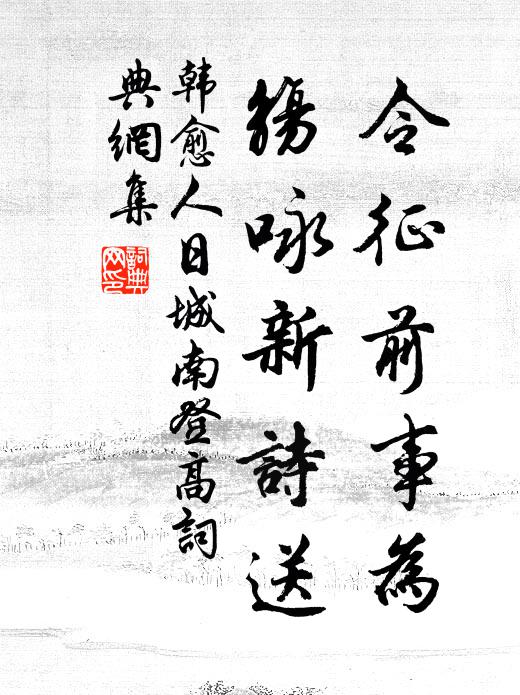 令征前事為
觴咏新詩送
韓愈人日城南登高詞
典網集
詞典
网印